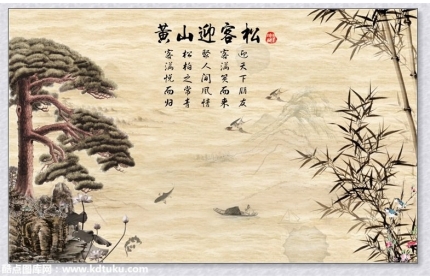 黄山迎客松
迎天下朋友
客满笑而来
聚人间风情
松柏之常青
客满悦而归
点图库网：www.kdtuku.com